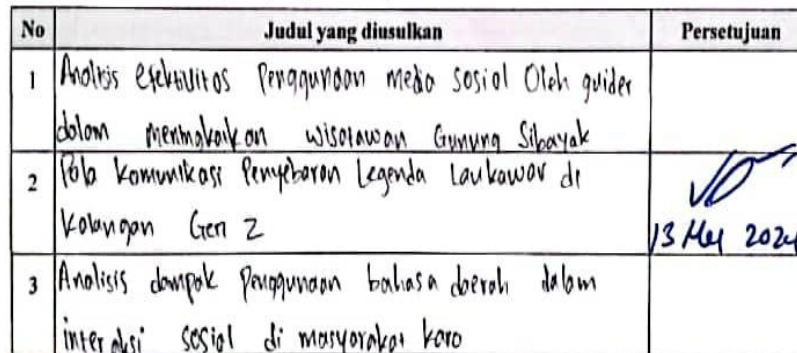 No Judul yang diusulkan Persetujuan
1 Analisis efektivitas Penggunaan media sosial Oleh guider
dalam wisatawan Gunung Sibayak
2 Pola komunikasi Penyebaran Legenda Laukawar di
Kalangan Gen Z
13 Mei 2024
3 Analisis dampak penggunaan bahasa daerah dalam
interaksi sosial di masyarakat karo